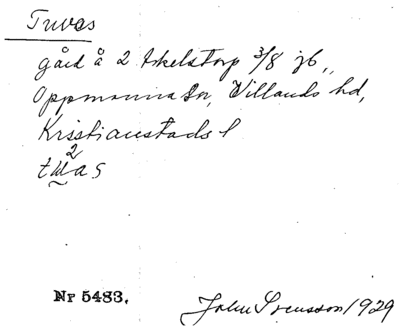 Tuvas
gård å 2 Arkelstorp 3/8 jb,,
Oppmanna sn, Villands hd,
Kristianstads l
tu²as
Nr 5483.
John Svensson 1929